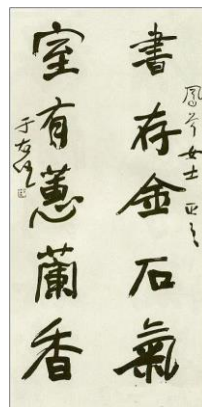 書存金石氣
鳳岑女士正之
室有蕙蘭香
于右任